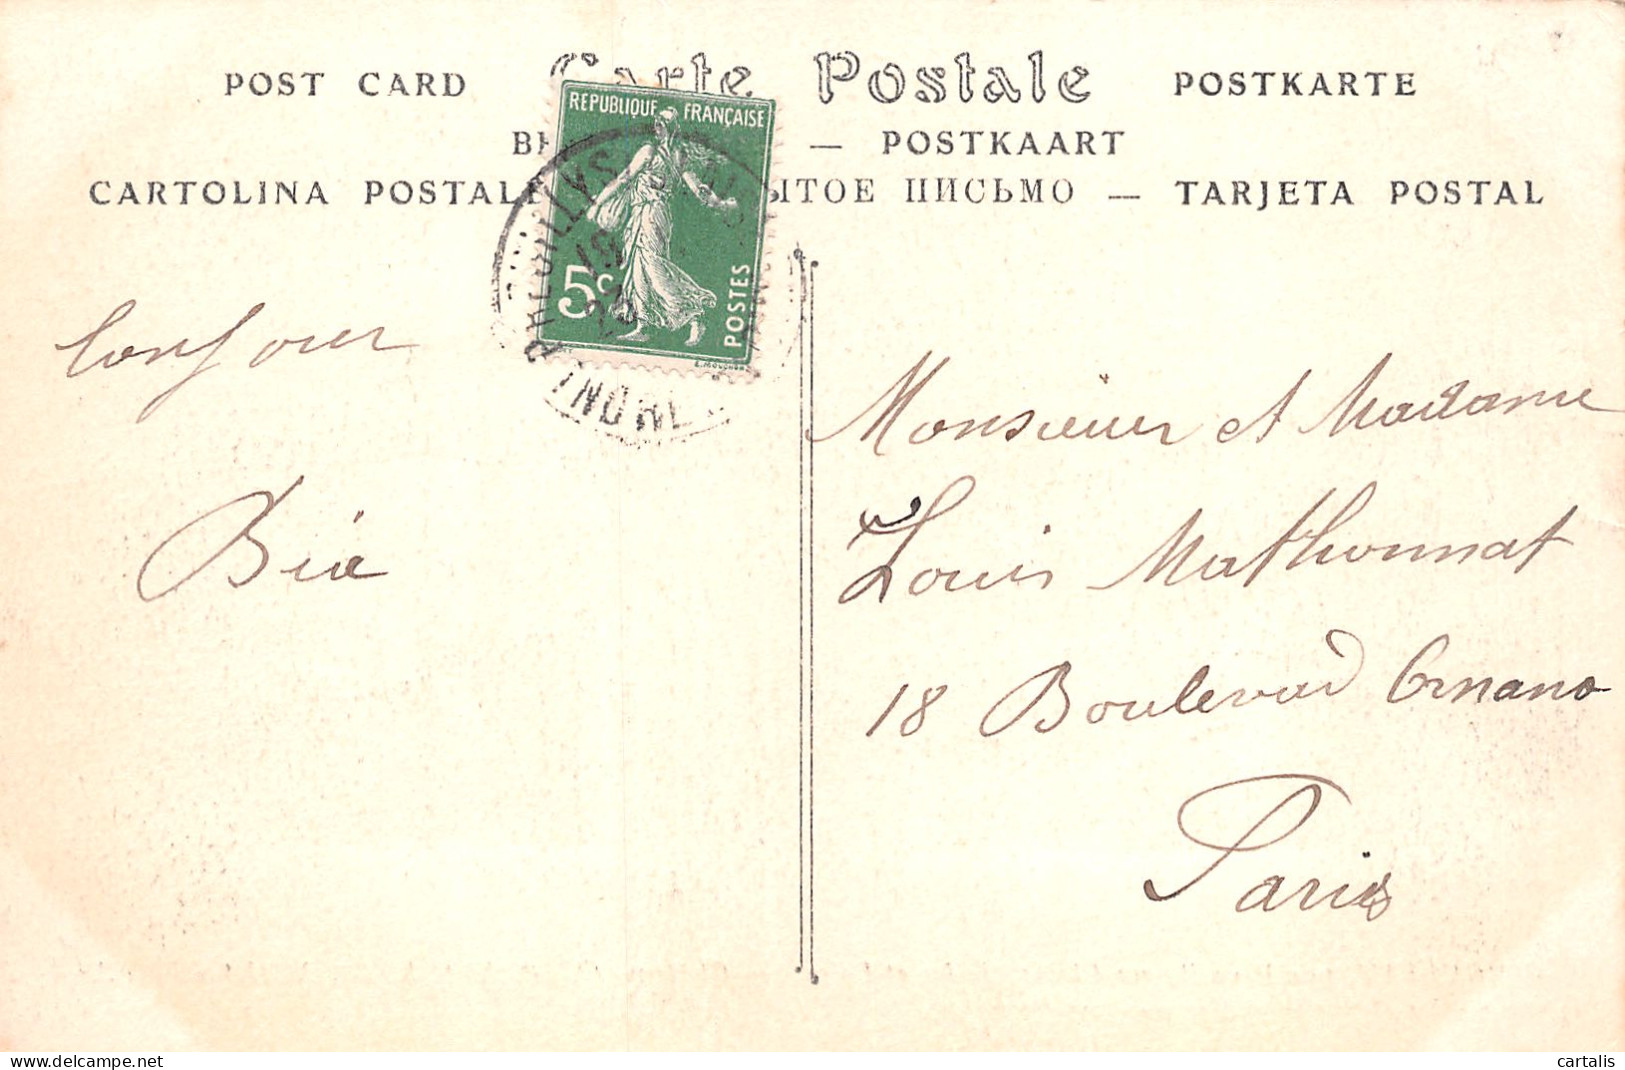 Carte Postale
POST CARD
POSTKARTE
— POSTKAART
CARTOLINA POSTAL
ЫТОЕ ПИСЬМО — TARJETA POSTAL
REPUBLIQUE FRANÇAISE
5c
POSTES
18
bonjour
Bia
Monsieur et Madame
Louis Mathonnat
18 Boulevard Ornano
Paris
cartalis